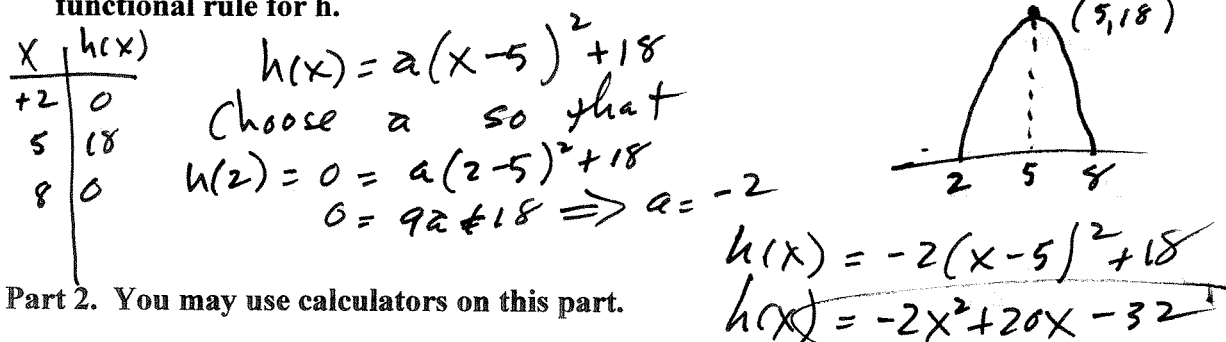 functional rule for h.
x h(x)
+2 0
5 18
8 0
h(x) = a(x-5)²+18
Choose a so that
h(2) = 0 = a(2-5)²+18
0 = 9a+18 => a = -2
(5,18)
2 5 8
h(x) = -2(x-5)²+18
h(x) = -2x²+20x-32
Part 2. You may use calculators on this part.